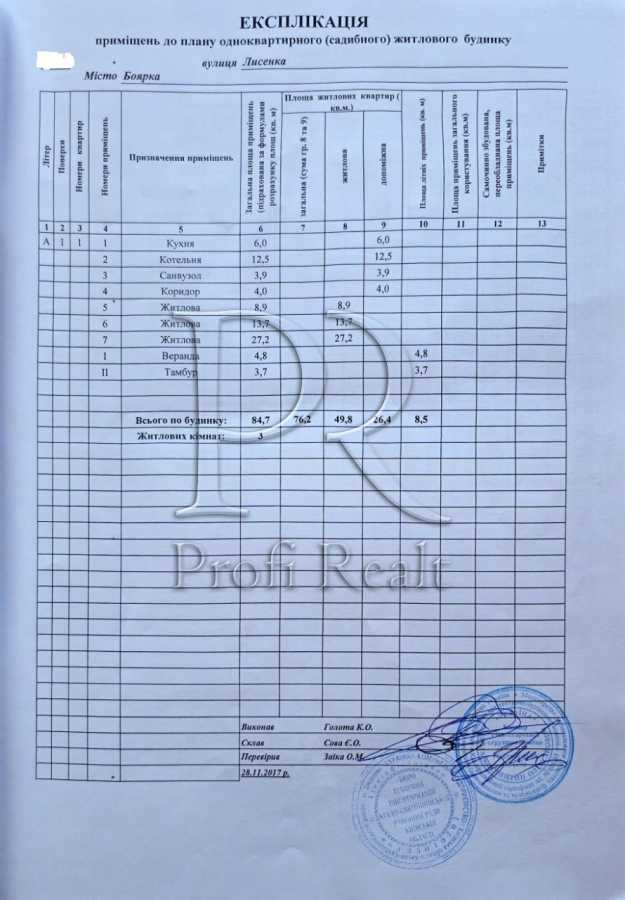 ЕКСПЛІКАЦІЯ
приміщень до плану одноквартирного (садибного) житлового будинку
вулиця Лисенка
Місто Боярка
Літер
Поверхи
Номери квартир
Номери приміщень
Призначення приміщень
Загальна площа приміщень (підрахована за формулами розрахунку площ (кв. м)
Площа житлових квартир ( кв.м.)
загальна (сума гр. 8 та 9)
житлова
допоміжна
Площа літніх приміщень (кв. м)
Площа приміщень загального користування (кв.м)
Самочинно збудована, переобладнана площа приміщень (кв.м)
Примітки
1 2 3 4 5 6 7 8 9 10 11 12 13
А 1 1 1 Кухня 6,0 6,0
2 Котельня 12,5 12,5
3 Санвузол 3,9 3,9
4 Коридор 4,0 4,0
5 Житлова 8,9 8,9
6 Житлова 13,7 13,7
7 Житлова 27,2 27,2
I Веранда 4,8 4,8
II Тамбур 3,7 3,7
Всього по будинку: 84,7 76,2 49,8 26,4 8,5
Житлових кімнат: 3
Profi Realt
Виконав Голота К.О.
Склав Сова Є.О.
Перевірив Заїка О.М.
28.11.2017 р.